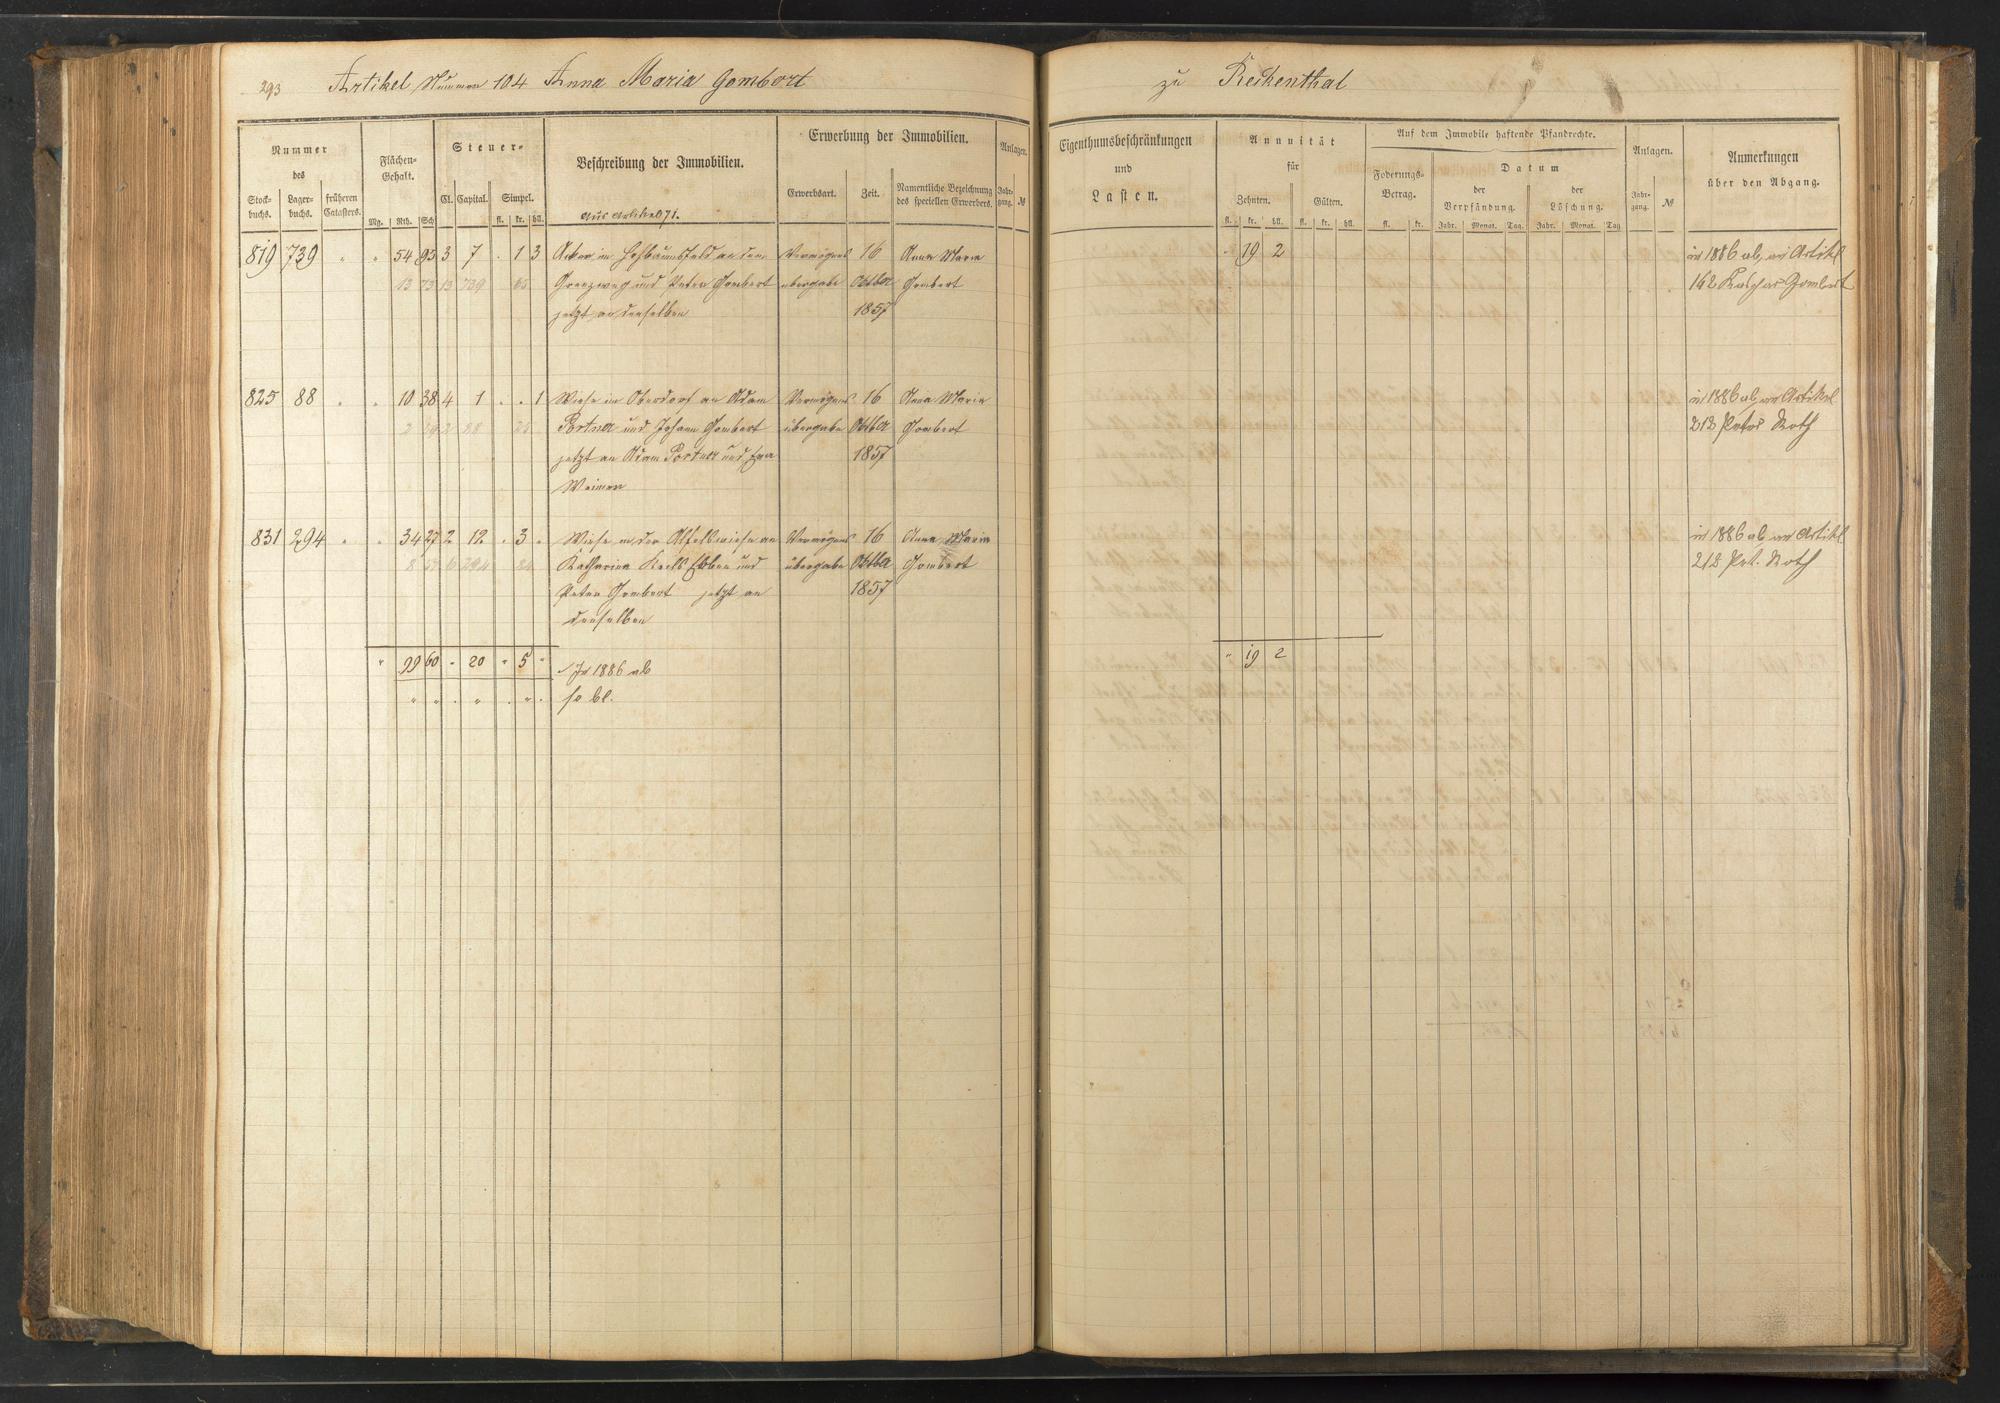 293 Artikel Nummer 104 Anna Maria Gombert
zu Reckenthal
Nummer
des
Stock-
buchs.
Lager-
buchs.
früheren
Catasters.
Flächen-
Gehalt.
Mg. Rth. Sch
Steuer-
Cl. Capital. Simpel.
fl. kr. hll.
Beschreibung der Immobilien.
Aus Artikel 71.
Erwerbung der Immobilien.
Erwerbsart. Zeit.
Namentliche Bezeichnung
des speciellen Erwerbers.
Anlagen.
Jahr-
gang. №
Eigenthumsbeschränkungen
und
Lasten.
Annuität
für
Zehnten. Gülten.
fl. kr. hll. fl. kr. hll.
Auf dem Immobile haftende Pfandrechte.
Foderungs-
Betrag.
fl. kr.
Datum
der
Verpfändung.
der
Löschung.
Jahr. Monat. Tag. Jahr. Monat. Tag
Anlagen.
Jahr-
gang. №
Anmerkungen
über den Abgang.
819 739 " " 54 93 3 7 . 1 3 Acker im an dem Vermögens 16 Anna Maria
13 73 13 739 65 Grenzweg und Peter Gombert übergabe Octber Gombert
jetzt an denselben 1857
" 19 2
in 1886 ab, in Artikl
162 Kaspar Gombert
825 88 . " 10 38 4 1 . . 1 Wiese im Oberdorf an Adam Vermögens 16 Anna Maria
Portner und Johann Gombert übergabe Octber Gombert
jetzt an Adam Portner und 1857
Weimer
in 1886 ab, in Artikel
212 Peter Roth
831 294 " " 34 27 2 12 . 3 . Wiese in der an Vermögens 16 Anna Maria
Katharina Erben und übergabe Octber Gombert
Peter Gombert jetzt an 1857
denselben
in 1886 ab in Artikl
212 Pet. Roth
" 99 60 - 20 " 5 " In 1886 ab
" " . " . " . so bl.
" 19 2